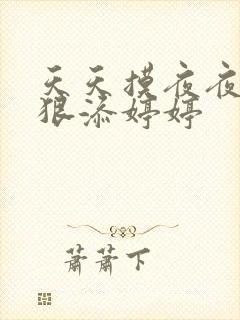 天天摸夜夜
狠添婷婷
萧萧下